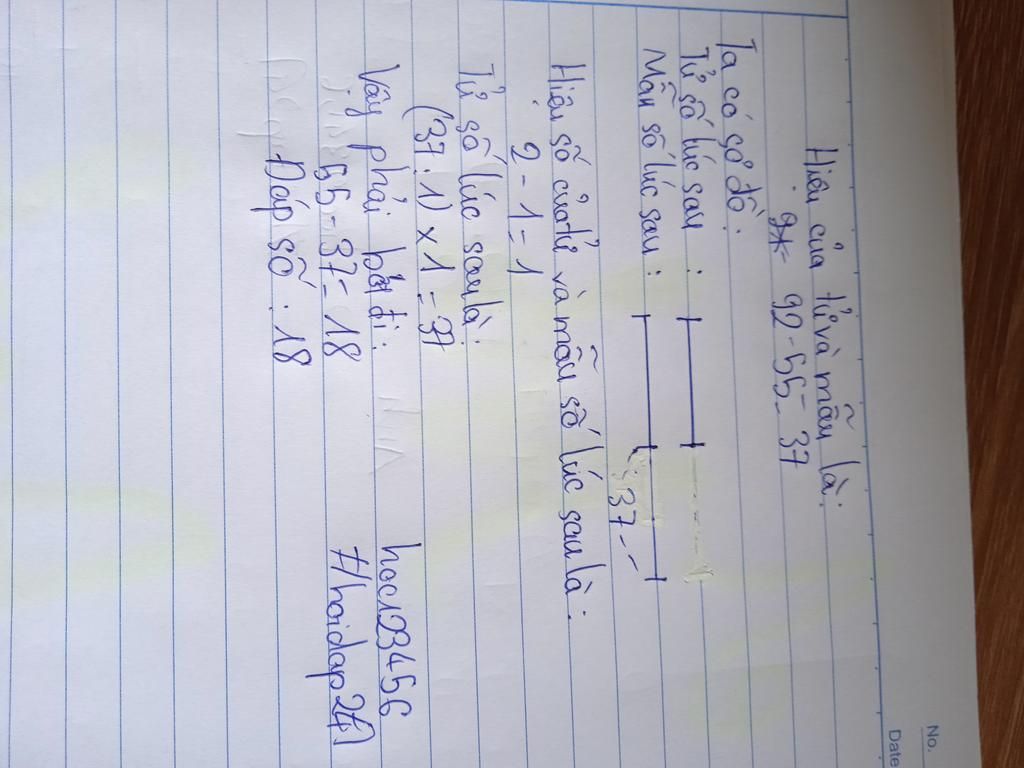 No.
Date
Hiệu của tử và mẫu là:
92 - 55 = 37
Ta có sơ đồ:
Tử số lúc sau :
Mẫu số lúc sau :
37
Hiệu số của tử và mẫu số lúc sau là:
2 - 1 = 1
Tử số lúc sau là:
(37 : 1) x 1 = 37
Vậy phải bớt đi:
55 - 37 = 18
Đáp số : 18
hoc123456
Hoidap247